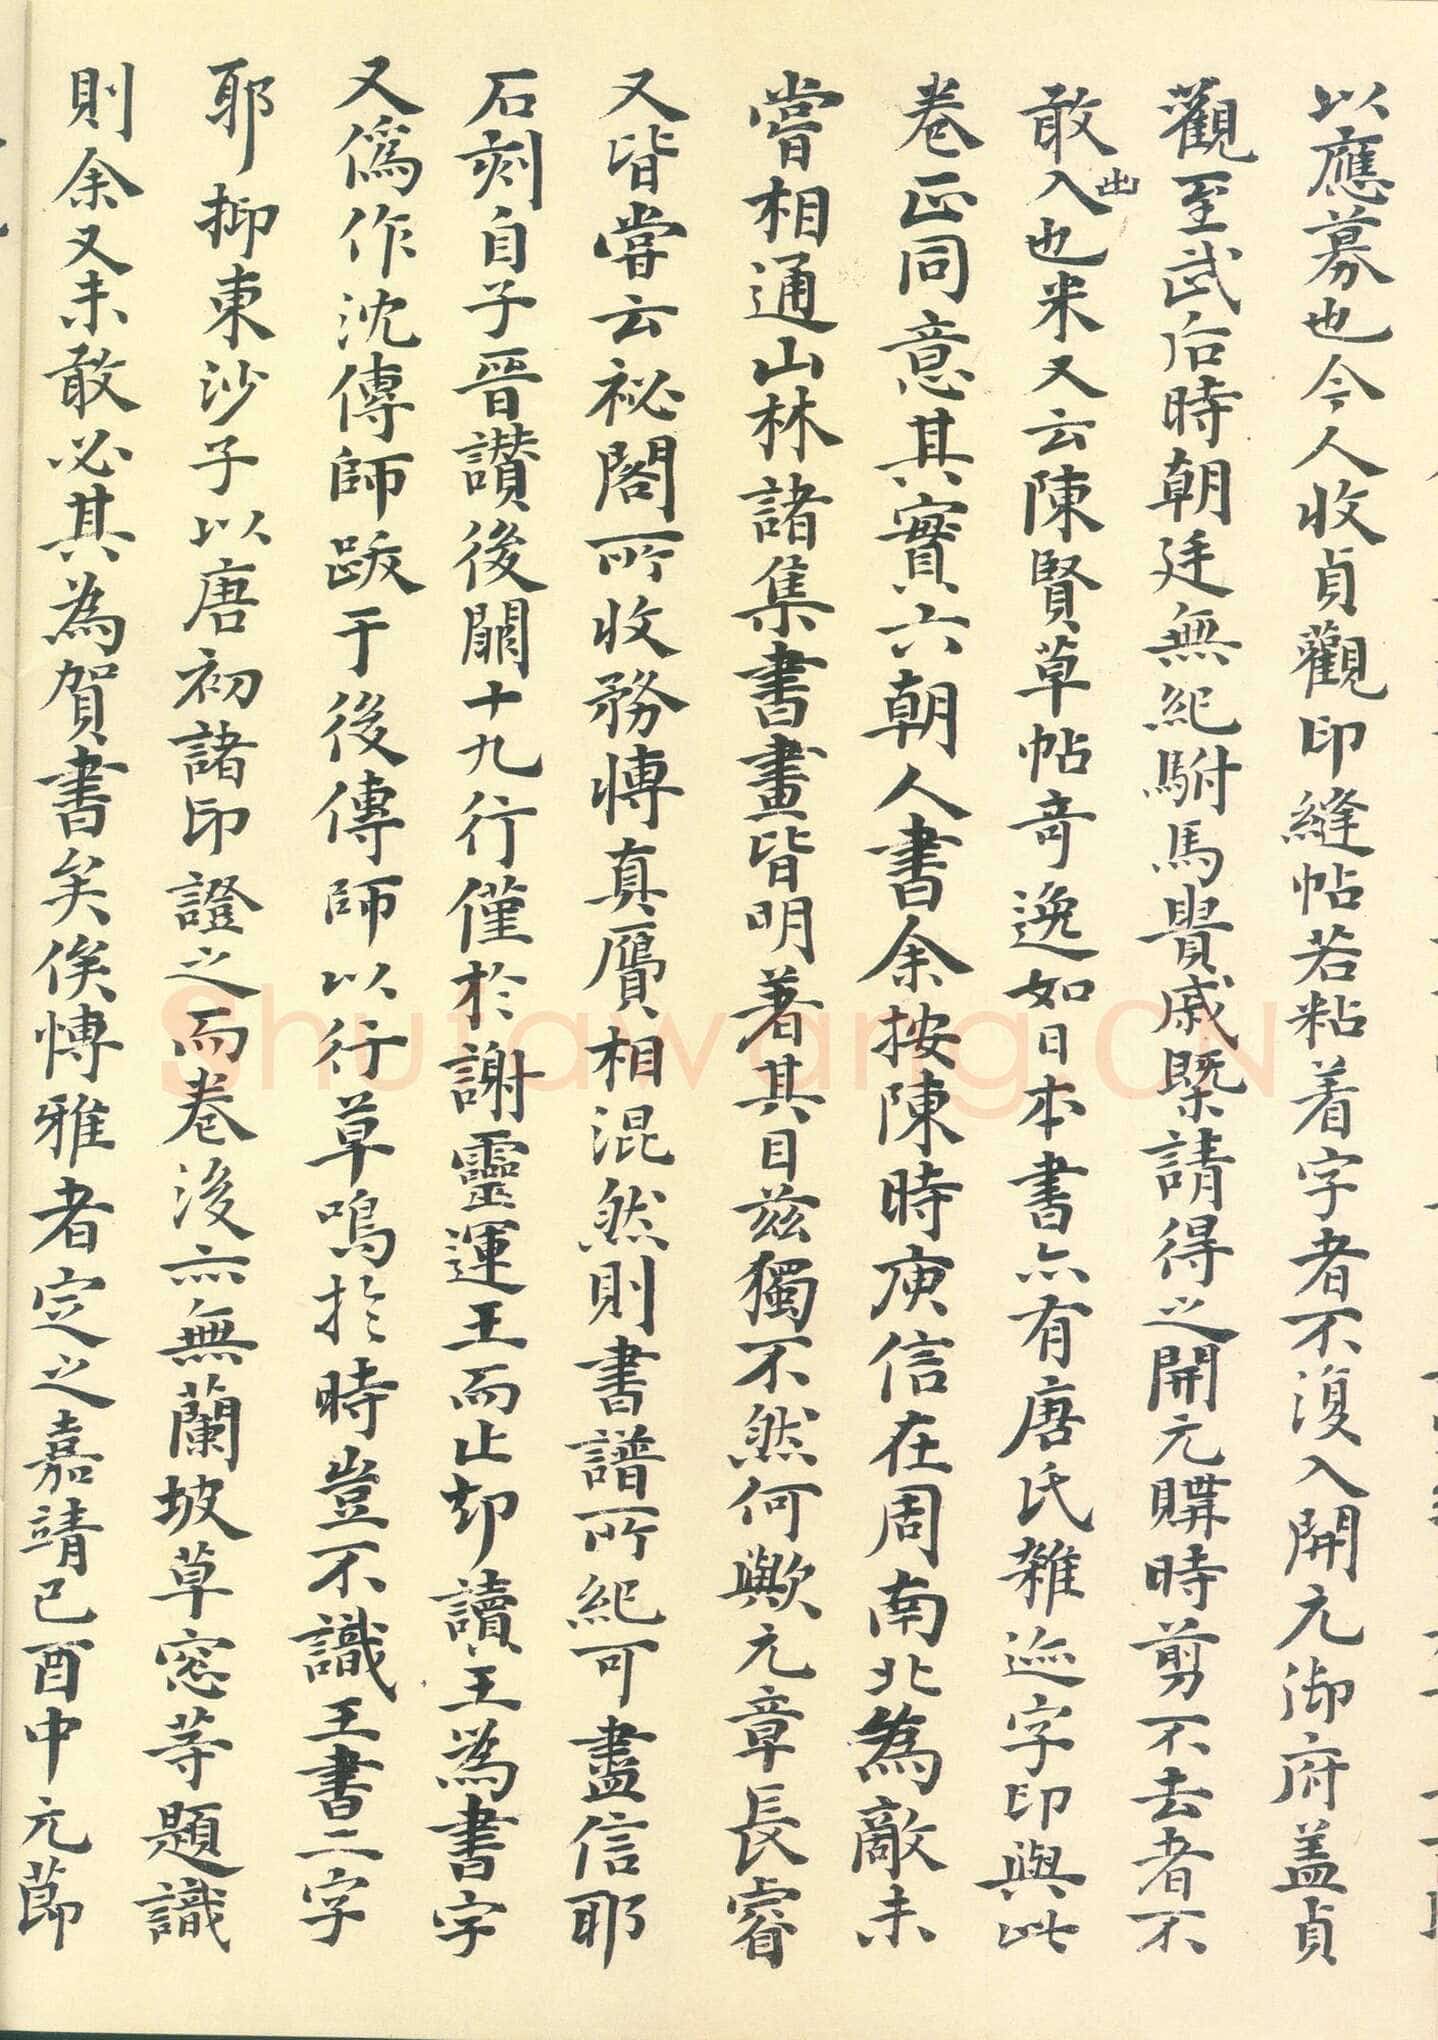 以應募也今人收貞觀印縫帖若粘着字者不復入開元御府盖貞
觀至武后時朝廷無紀駙馬貴戚曁請得之開元購時剪不去者不
敢入出也米又云陳賢草帖奇逸如日本書亦有唐氏雜迹字印與此
卷正同意其實六朝人書余按陳時庾信在周南北為敵未
嘗相通山林諸集書畫皆明著其目兹獨不然何歟元章長睿
又皆嘗云祕閣所收務博真贗相混然則書譜所紀可盡信耶
石刻自子晋讚後闕十九行僅於謝靈運王而止却讀王為書字
又偽作沈傳師跋于後傳師以行草鳴於時豈不識王書二字
耶抑東沙子以唐初諸印證之而卷後亦無蘭坡草窓等題識
則余又未敢必其為賀書矣俟博雅者定之嘉靖己酉中元節
Shufawang.CN